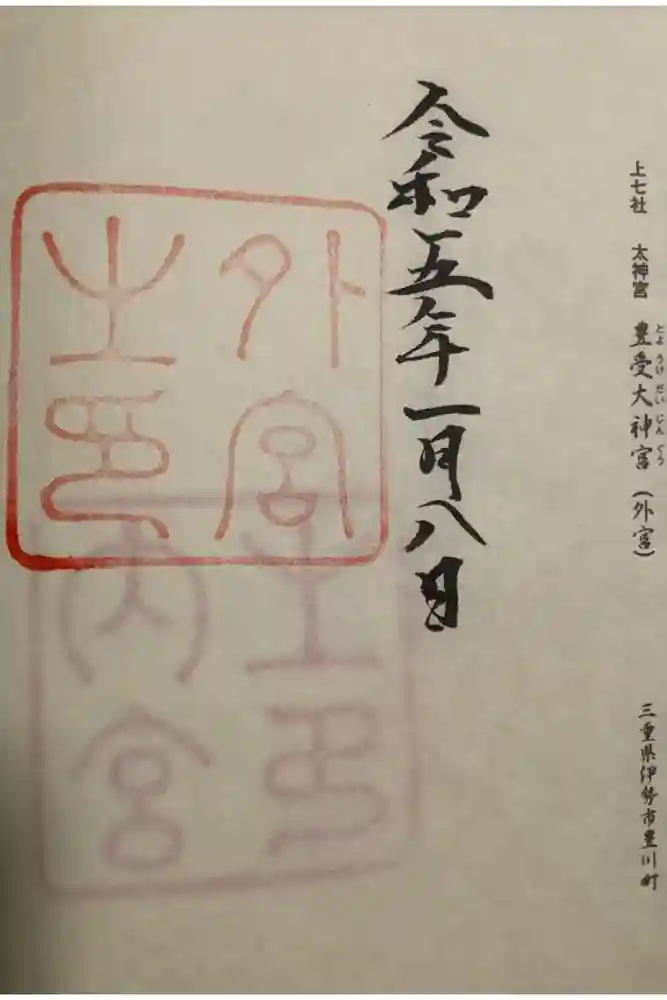 上七社 太神宮 豊受大神宮(外宮) 三重県伊勢市豊川町
とようけだいじんぐう
令和五年一月八日
外宮
之印
内宮
之印